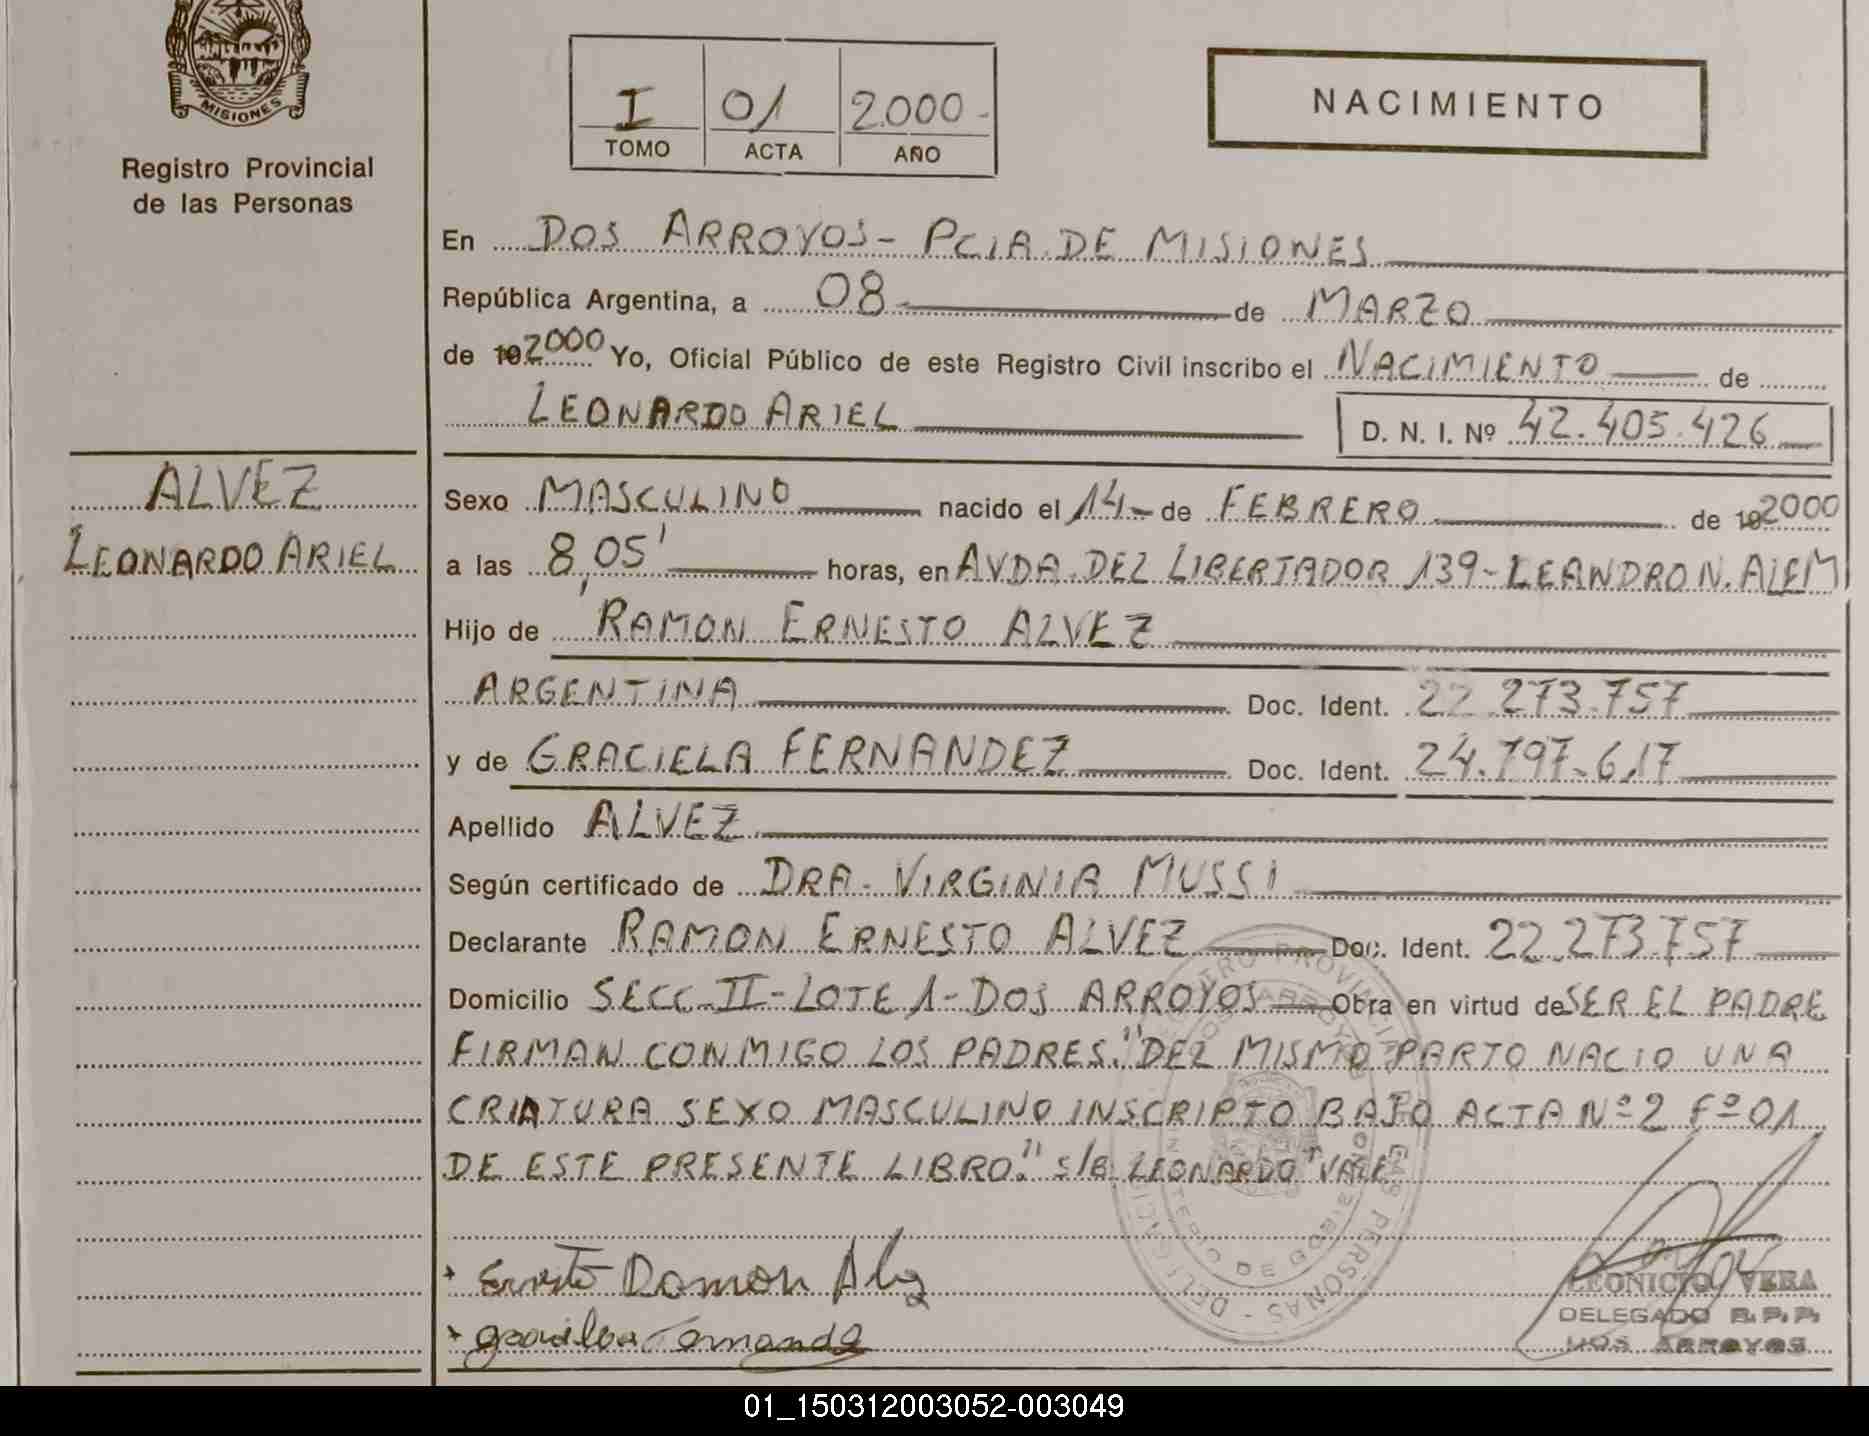 MISIONES
Registro Provincial
de las Personas
I 01 2.000-
TOMO ACTA AÑO
NACIMIENTO
En DOS ARROYOS- PCIA. DE MISIONES
República Argentina, a 08 de MARZO
de 19 2000 Yo, Oficial Público de este Registro Civil inscribo el NACIMIENTO de
LEONARDO ARIEL D. N. I. Nº 42.405.426
ALVEZ
LEONARDO ARIEL
Sexo MASCULINO nacido el 14- de FEBRERO de 19 2000
a las 8,05' horas, en AVDA. DEL LIBERTADOR 139- LEANDRO N. ALEM
Hijo de RAMON ERNESTO ALVEZ
ARGENTINA Doc. Ident. 22.273.757
y de GRACIELA FERNANDEZ Doc. Ident. 24.797.617
Apellido ALVEZ
Según certificado de DRA. VIRGINIA MUSSI
Declarante RAMON ERNESTO ALVEZ Doc. Ident. 22.273.757
Domicilio SECC. II- LOTE 1- DOS ARROYOS Obra en virtud de SER EL PADRE
FIRMAN CONMIGO LOS PADRES." DEL MISMO PARTO NACIO UNA
CRIATURA SEXO MASCULINO INSCRIPTO BAJO ACTA Nº 2 Fº 01
DE ESTE PRESENTE LIBRO." S/B LEONARDO" VALE
Ernesto Ramon Alvez
graciela Fernandez
LEONICIO VERA
DELEGADO R. P. P.
DOS ARROYOS
01_150312003052-003049